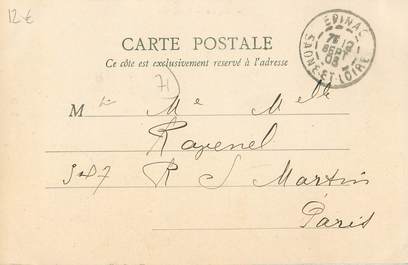 12 €
CARTE POSTALE
Ce côté est exclusivement reservé à l'adresse
EPINAC
SAONE-ET-LOIRE
12
SEPT
03
71
M Me Melle
Ravenel
347 R S Martin
Paris